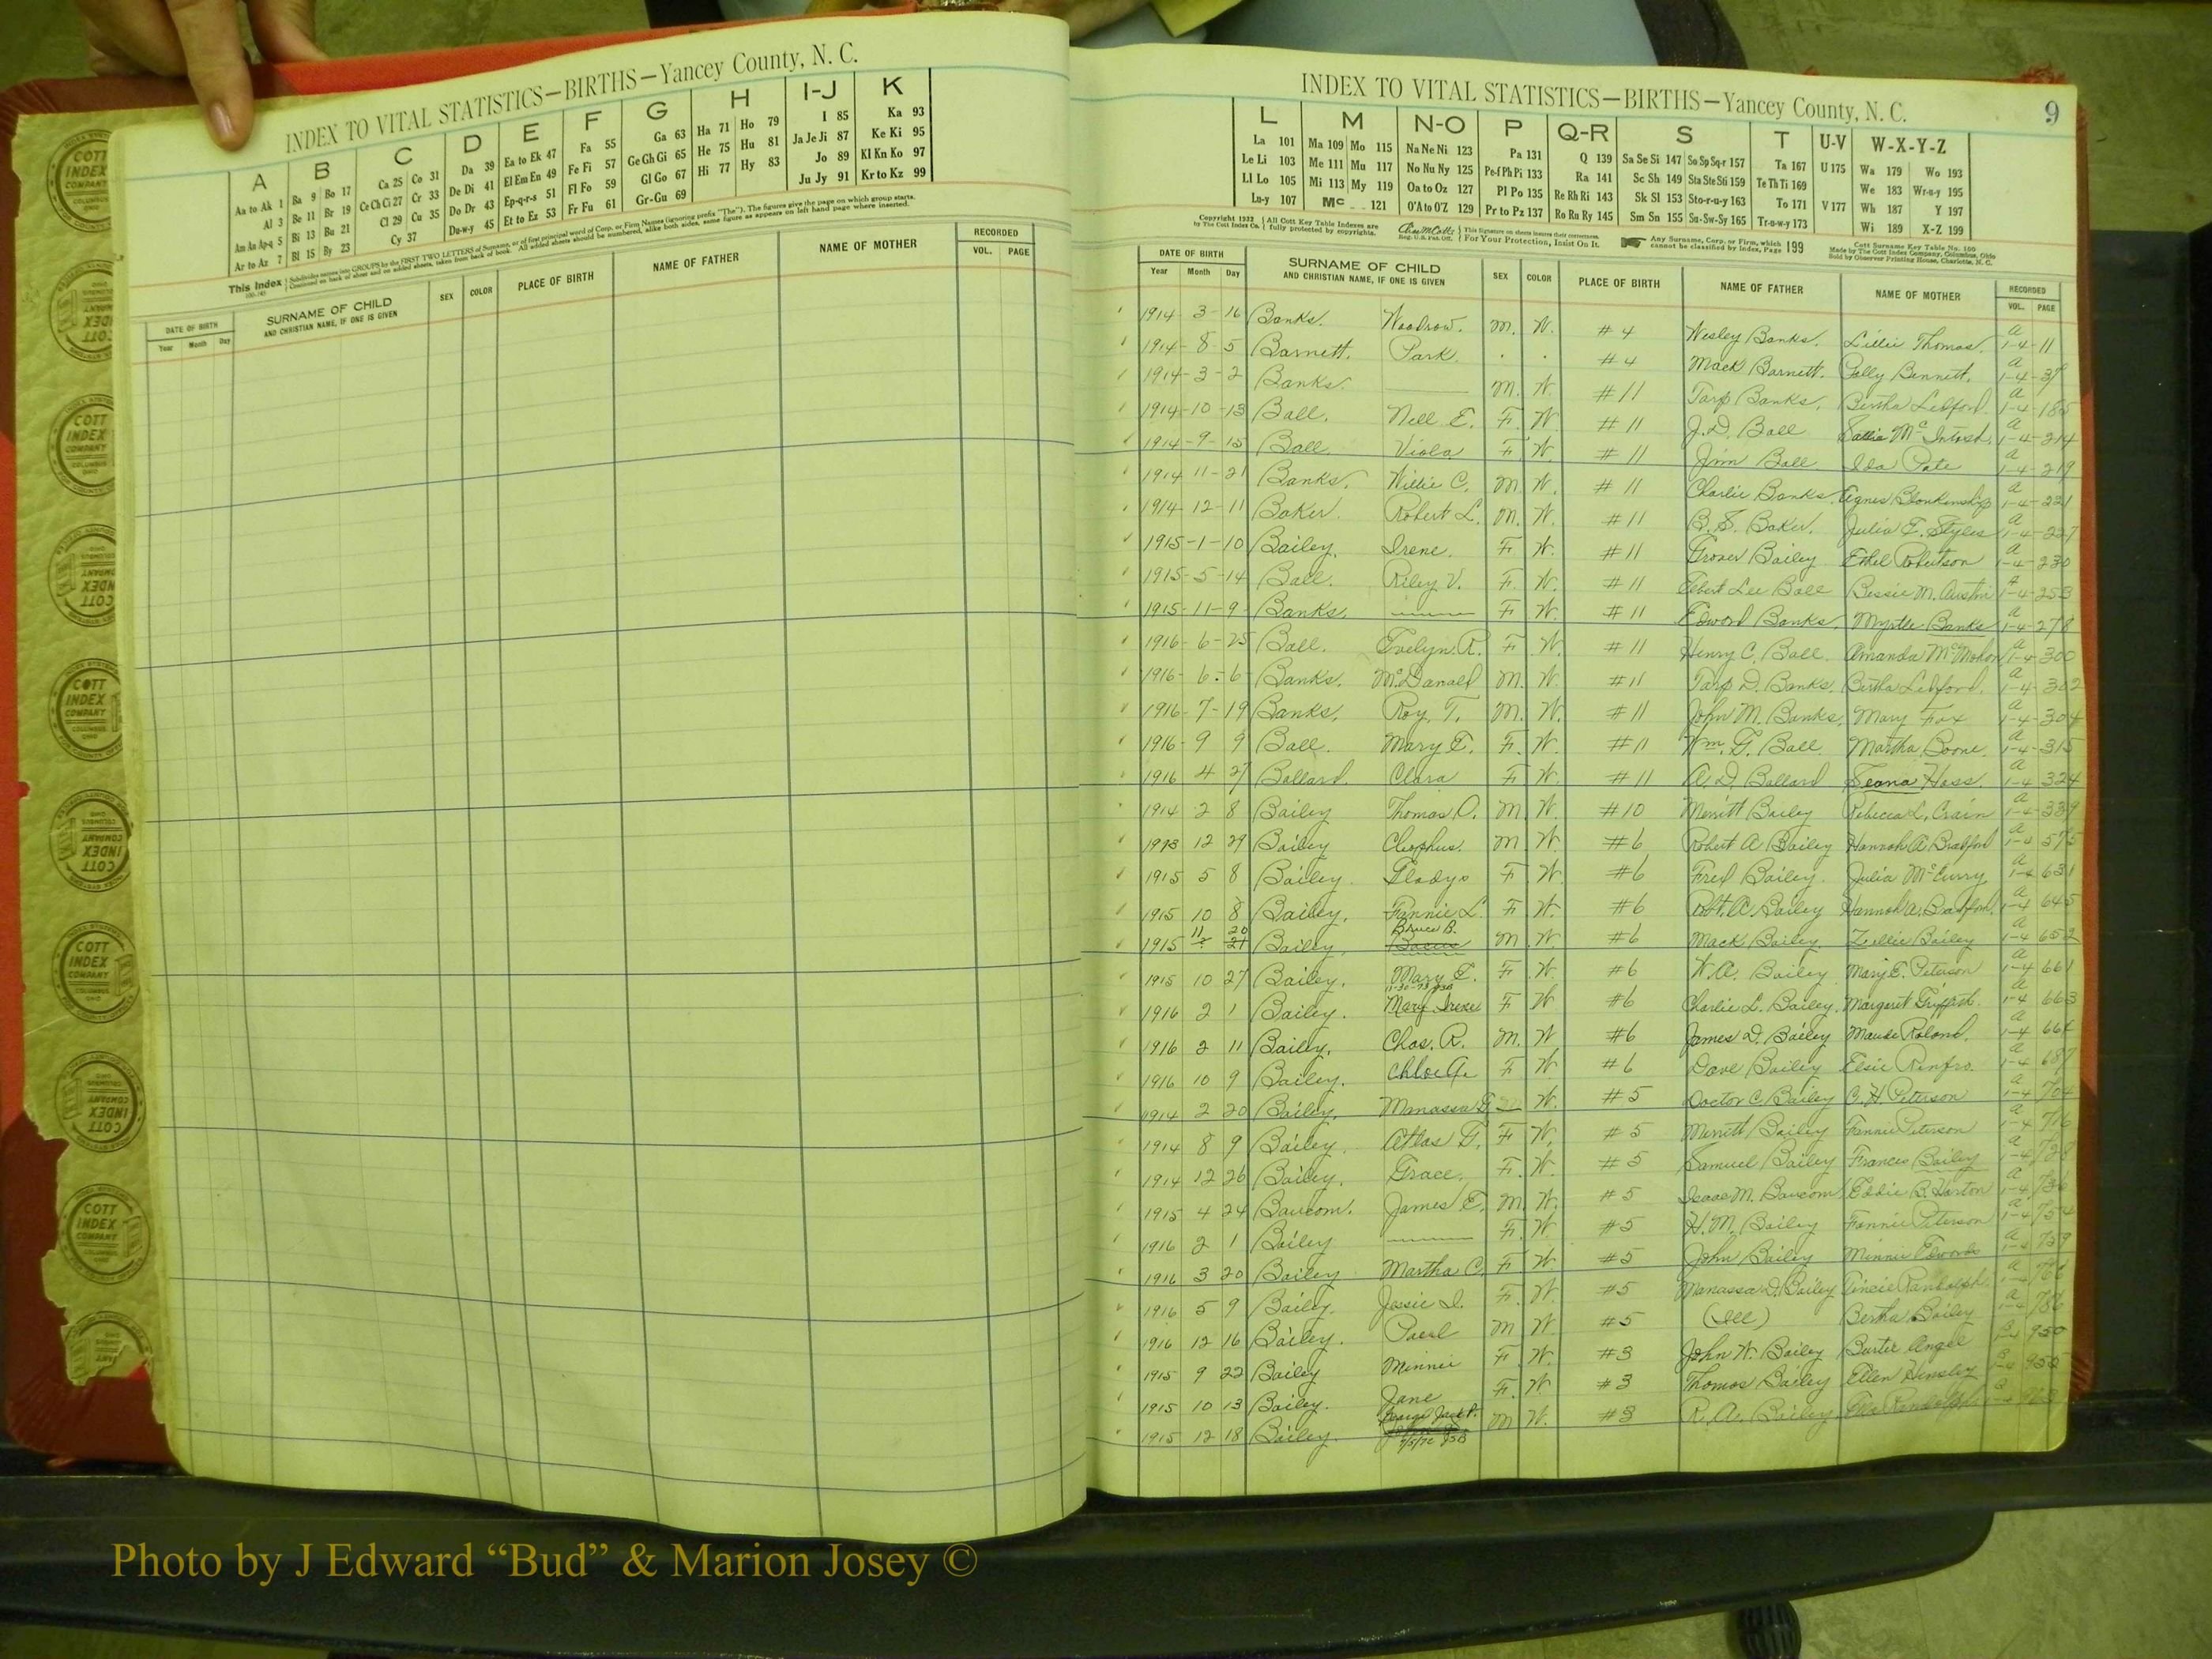 INDEX TO VITAL STATISTICS—BIRTHS—Yancey County, N. C.
A B C D E F G H I-J K
Aa to Ak 1 Ba 9 Bo 17 Ca 25 Co 31 Da 39 Ea to Ek 47 Fa 55 Ga 63 Ha 71 Ho 79 I 85 Ka 93
Al 3 Be 11 Br 19 Ce Ch Ci 27 Cr 33 De Di 41 El Em En 49 Fe Fi 57 Ge Gh Gi 65 He 75 Hu 81 Ja Je Ji 87 Ke Ki 95
Am An Ap-q 5 Bi 13 Bu 21 Cl 29 Cu 35 Do Dr 43 Ep-q-r-s 51 Fl Fo 59 Gl Go 67 Hi 77 Hy 83 Jo 89 Kl Kn Ko 97
Ar to Az 7 Bl 15 By 23 Cy 37 Du-w-y 45 Et to Ez 53 Fr Fu 61 Gr-Gu 69 Ju Jy 91 Kr to Kz 99
This Index Subdivides names into GROUPS by the FIRST TWO LETTERS of Surname, or of first principal word of Corp. or Firm Names (ignoring prefix "The"). The figures give the page on which group starts.
Continued on back of sheet and on added sheets, taken from back of book. All added sheets should be numbered, alike both sides, same figure as appears on left hand page where inserted.
DATE OF BIRTH SURNAME OF CHILD SEX COLOR PLACE OF BIRTH NAME OF FATHER NAME OF MOTHER RECORDED
Year Month Day AND CHRISTIAN NAME, IF ONE IS GIVEN VOL. PAGE
COTT INDEX COMPANY COLUMBUS OHIO
INDEX TO VITAL STATISTICS—BIRTHS—Yancey County, N. C. 9
L M N-O P Q-R S T U-V W-X-Y-Z
La 101 Ma 109 Mo 115 Na Ne Ni 123 Pa 131 Q 139 Sa Se Si 147 So Sp Sq-r 157 Ta 167 U 175 Wa 179 Wo 193
Le Li 103 Me 111 Mu 117 No Nu Ny 125 Pe-f Ph Pi 133 Ra 141 Sc Sh 149 Sta Ste Sti 159 Te Th Ti 169 We 183 Wr-u-y 195
Ll Lo 105 Mi 113 My 119 Oa to Oz 127 Pl Po 135 Re Rh Ri 143 Sk Sl 153 Sto-r-u-y 163 To 171 V 177 Wh 187 Y 197
Lu-y 107 Mc 121 O'A to O'Z 129 Pr to Pz 137 Ro Ru Ry 145 Sm Sn 155 Su-Sw-Sy 165 Tr-u-w-y 173 Wi 189 X-Z 199
Copyright 1932 by The Cott Index Co. All Cott Key Table Indexes are fully protected by copyrights. This signature on sheets insures their correctness. For Your Protection, Insist On It. Any Surname, Corp. or Firm, which cannot be classified by Index, Page 199 Cott Surname Key Table No. 100 Made by The Cott Index Company, Columbus, Ohio Sold by Observer Printing House, Charlotte, N. C.
DATE OF BIRTH SURNAME OF CHILD SEX COLOR PLACE OF BIRTH NAME OF FATHER NAME OF MOTHER RECORDED
Year Month Day AND CHRISTIAN NAME, IF ONE IS GIVEN VOL. PAGE
1914-3-16 Banks. Woodrow. M. W. #4 Wesley Banks. Lillie Thomas. A 1-4-11
1914-8-5 Barnett. Park. . . #4 Mack Barnett. Polly Bennett. A 1-4-37
1914-3-2 Banks. —— M. W. #11 Tarp Banks. Bertha Ledford. A 1-4-185
1914-10-13 Ball. Nell E. F. W. #11 J.D. Ball Sallie McIntosh. A 1-4-214
1914-9-15 Ball Viola F W. #11 Jim Ball Ida Pate A 1-4-219
1914 11-21 Banks. Willie C. M. W. #11 Charlie Banks. Agnes Blankenship A 1-4-221
1914-12-11 Baker. Robert L. M. W. #11 B.S. Baker. Julia E. Styles A 1-4-227
1915-1-10 Bailey. Irene. F W. #11 Grover Bailey Ethel Robertson A 1-4-230
1915-5-14 Ball. Riley V. F. W. #11 Elbert Lee Ball Bessie M. Austin A 1-4-253
1915-11-9 Banks. —— F W. #11 Edword Banks. Myrtle Banks A 1-4-278
1916-6-25 Ball. Evelyn R. F W. #11 Henry C. Ball. Amanda McMahon A 1-4-300
1916-6-6 Banks. McDanald M. W. #11 Tarp D. Banks. Bertha Ledford. A 1-4-302
1916-7-19 Banks. Roy T. M. W. #11 John M. Banks. Mary Fox A 1-4-304
1916-9 9 Ball. Mary E. F. W. #11 Wm. G. Ball Martha Boone A 1-4-315
1916 4 27 Ballard. Clara F W. #11 A.D. Ballard Seana Hass. A 1-4-324
1914 2 8 Bailey Thomas O. M. W. #10 Merritt Bailey Rebecca L. Crain A 1-4-339
1913 12 29 Bailey Cleophus. M W. #6 Robert A Bailey Hannah A. Bradford A 1-4 575
1915 5 8 Bailey. Gladys F W. #6 Fred Bailey. Julia McCurry A 1-4 631
1915 10 8 Bailey. Fannie L. F W. #6 Robt. A Bailey Hannah A. Bradford. A 1-4 645
1915 11 20 21 Bailey. Bruce B. M W. #6 Mack Bailey. Zellie Bailey A 1-4 652
1915 10 27 Bailey. Mary E. F W. #6 W.A. Bailey Mary E. Peterson A 1-4 661
1916 2 1 Bailey. Mary Irene F W #6 Charlie L. Bailey. Margaret Griffith. A 1-4 663
1916 2 11 Bailey. Chas. R. M. W #6 James D. Bailey Maude Roland. A 1-4 664
1916 10 9 Bailey. Chloe A. F W #6 Dave Bailey Elsie Renfro. A 1-4 687
1914 2 20 Bailey. Manassa D. W. #5 Doctor C. Bailey C.H. Peterson A 1-4 704
1914 8 9 Bailey. Atlas G. F W. #5 Merritt Bailey Fannie Peterson A 1-4 716
1914 12 26 Bailey. Grace. F. W. #5 Samuel Bailey Frances Bailey A 1-4 728
1915 4 24 Baucom. James E. M. W. #5 Isaac M. Baucom Eddie B. Horton A 1-4 736
1916 2 1 Bailey —— F. W #5 H.M. Bailey Fannie Peterson A 1-4 754
1916 3 20 Bailey Martha C. F W #5 John Bailey Minnie Edwards A 1-4 759
1916 5 9 Bailey. Jessie I. F. W. #5 Manassa D. Bailey Randolph. A 1-4 766
1916 12 16 Bailey. Paerl M W. #5 (Ill) Bertha Bailey A 1-4 786
1915 9 22 Bailey Minnie F W. #3 John W. Bailey Angel B 1-4 950
1915 10 13 Bailey. Jane F. W #3 Thomas Bailey Ellen Hensley B 1-4 955
1915 12 18 Bailey. George Jack P. M W. #3 R.A. Bailey Randolph.
9/5/72 JSB
Photo by J Edward “Bud” & Marion Josey ©